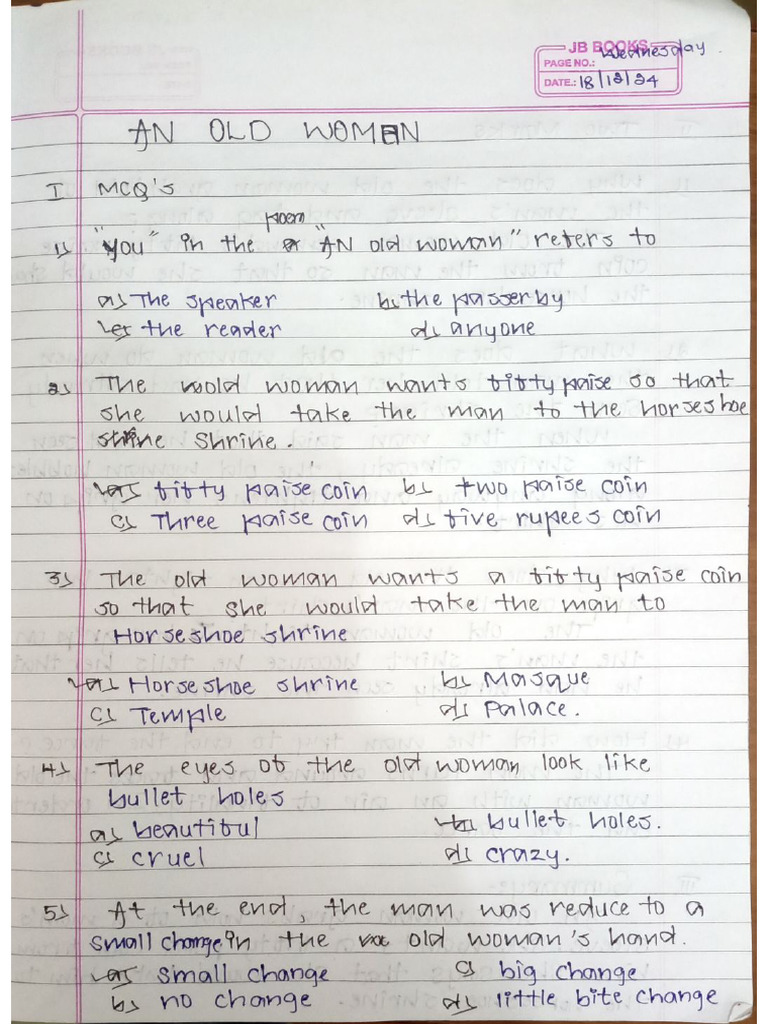 JB BOOKS
Wednesday
PAGE NO.:
DATE.: 18/12/24
AN OLD WOMEN
I MCQ's
poem
1) "you" in the "AN old woman" refers to
a) The speaker b) the passerby
c) the reader d) anyone
2) The wold woman wants fifty paise so that
she would take the man to the horseshoe
Shrine.
a) fifty paise coin b) two paise coin
c) Three paise coin d) five rupees coin
3) The old woman wants a fifty paise coin
so that she would take the man to
Horseshoe shrine
a) Horseshoe shrine b) Masque
c) Temple d) Palace.
4) The eyes of the old woman look like
bullet holes
a) beautiful b) bullet holes.
c) cruel d) crazy.
5) At the end, the man was reduce to a
small change in the old woman's hand.
a) small change c) big change
b) no change d) little bite change